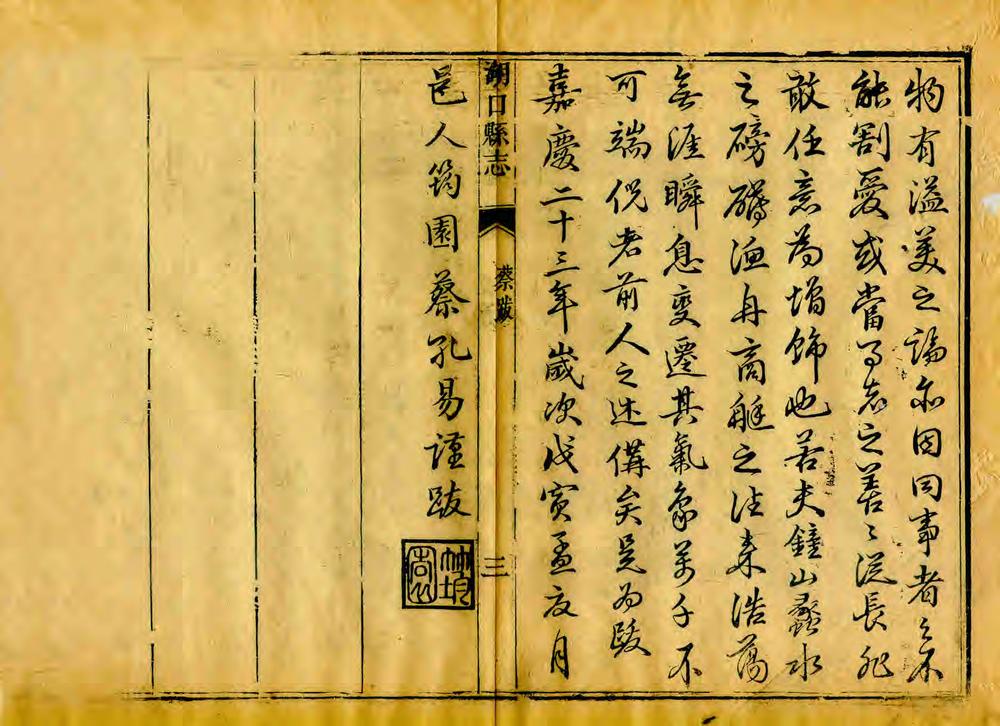 物有溢美之論亦因同事者之不
能割愛或當局者之善善從長非
敢任意為增飾也若夫鐘山蠡水
之磅礴漁舟商艇之往來浩蕩
無涯瞬息變遷其氣象萬千不
可端倪者前人之述備矣是為跋
嘉慶二十三年歲次戊寅孟夏月
湖口縣志 蔡跋 三
邑人筠園蔡孔易謹跋